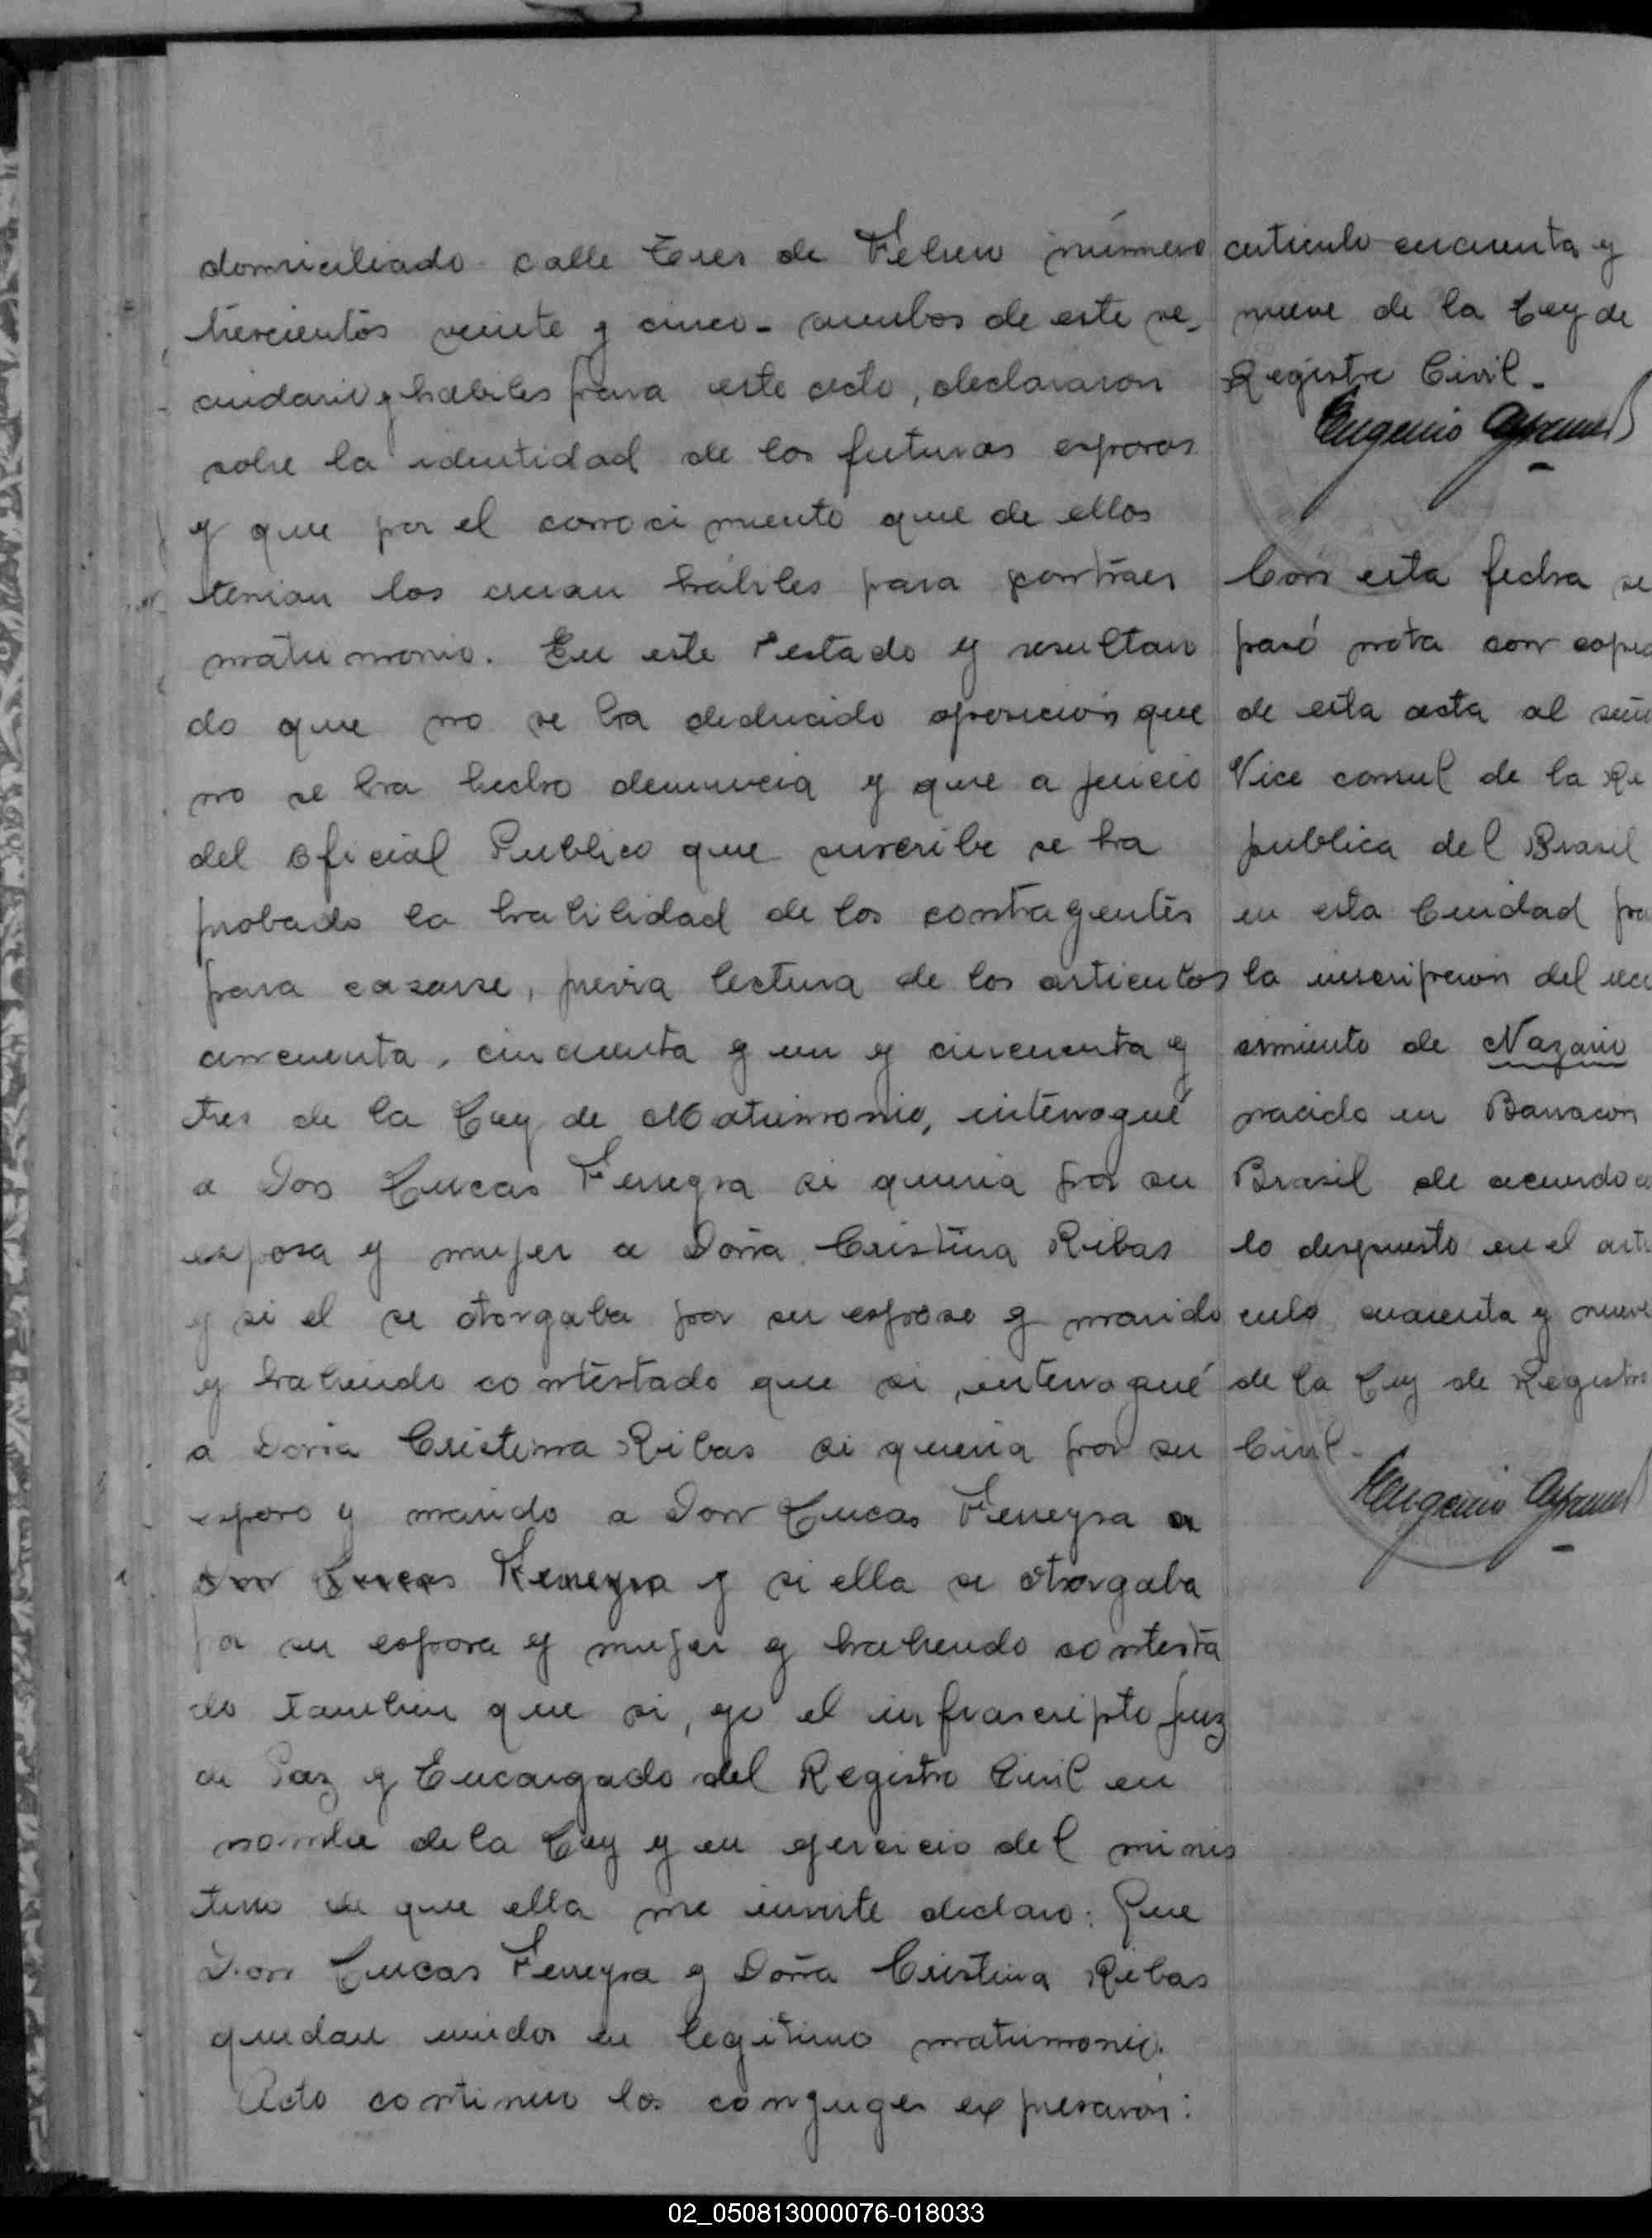 domiciliado calle Tres de Febrero número
trescientos veinte y cinco - ambos de este ve-
cindario y habiles para este acto, declararon
sobre la identidad de los futuros esposos
y que por el conocimiento que de ellos
tenian los creian hábiles para contraer
matrimonio. En este estado y resultan
do que no se ha deducido oposición que
no se ha hecho denuncia y que a juicio
del Oficial Publico que suscribe se ha
probado la habilidad de los contragentes
para casarse, previa lectura de los articulos
cincuenta, cincuenta y un y cincuenta y
tres de la Ley de Matrimonio, interrogué
a Don Lucas Ferreyra si queria por su
esposa y mujer a Doña Cristina Ribas
y si el se otorgaba por su esposo y marido
y habiendo contestado que si, interrogué
a Doña Cristina Ribas si queria por su
esposo y marido a Don Lucas Ferreyra a
Don Lucas Ferreyra y si ella se otorgaba
por su esposa y mujer y habiendo contesta
do tambien que si, yo el infrascripto Juez
de Paz y Encargado del Registro Civil en
nombre de la Ley y en ejercicio del minis
terio de que ella me inviste declaro: Que
Don Lucas Ferreyra y Doña Cristina Ribas
quedan unidos en legitimo matrimonio.
Acto continuo los conyuges expresaron:
articulo cuarenta y
nueve de la Ley de
Registro Civil.
Eugenio
Con esta fecha se
pasó nota con copia
de esta acta al señ
Vice consul de la Re
publica del Brasil
en esta Ciudad pa
la inscripcion del reco
cimiento de Nazario
nacido en Barracon
Brasil de acuerdo a
lo dispuesto en el arti
culo cuarenta y nueve
de la Ley de Registro
Civil.
Eugenio
02_050813000076-018033